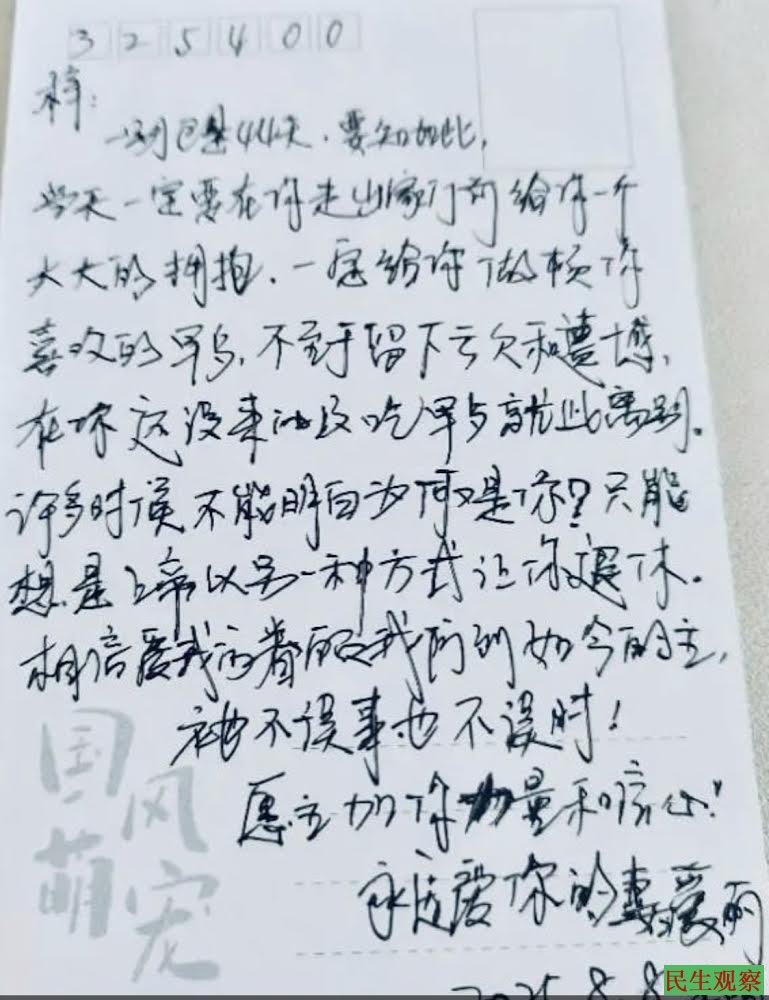 325400
梓:
一别已是44天,要知如此,
当天一定要在你走出家门前给你一个
大大的拥抱,一定给你做顿你
喜欢的早餐,不至于留下亏欠和遗憾,
在你还没来的及吃早与就此离别。
许多时候不能明白为何又是你?只能
想是上帝以另一种方式让你退休。
相信爱我们眷顾我们到如今的主,
祂不误事也不误时!
愿主加你力量和信心!
永远爱你的妻爱丽
2025.8.8
国风萌宠
民生观察